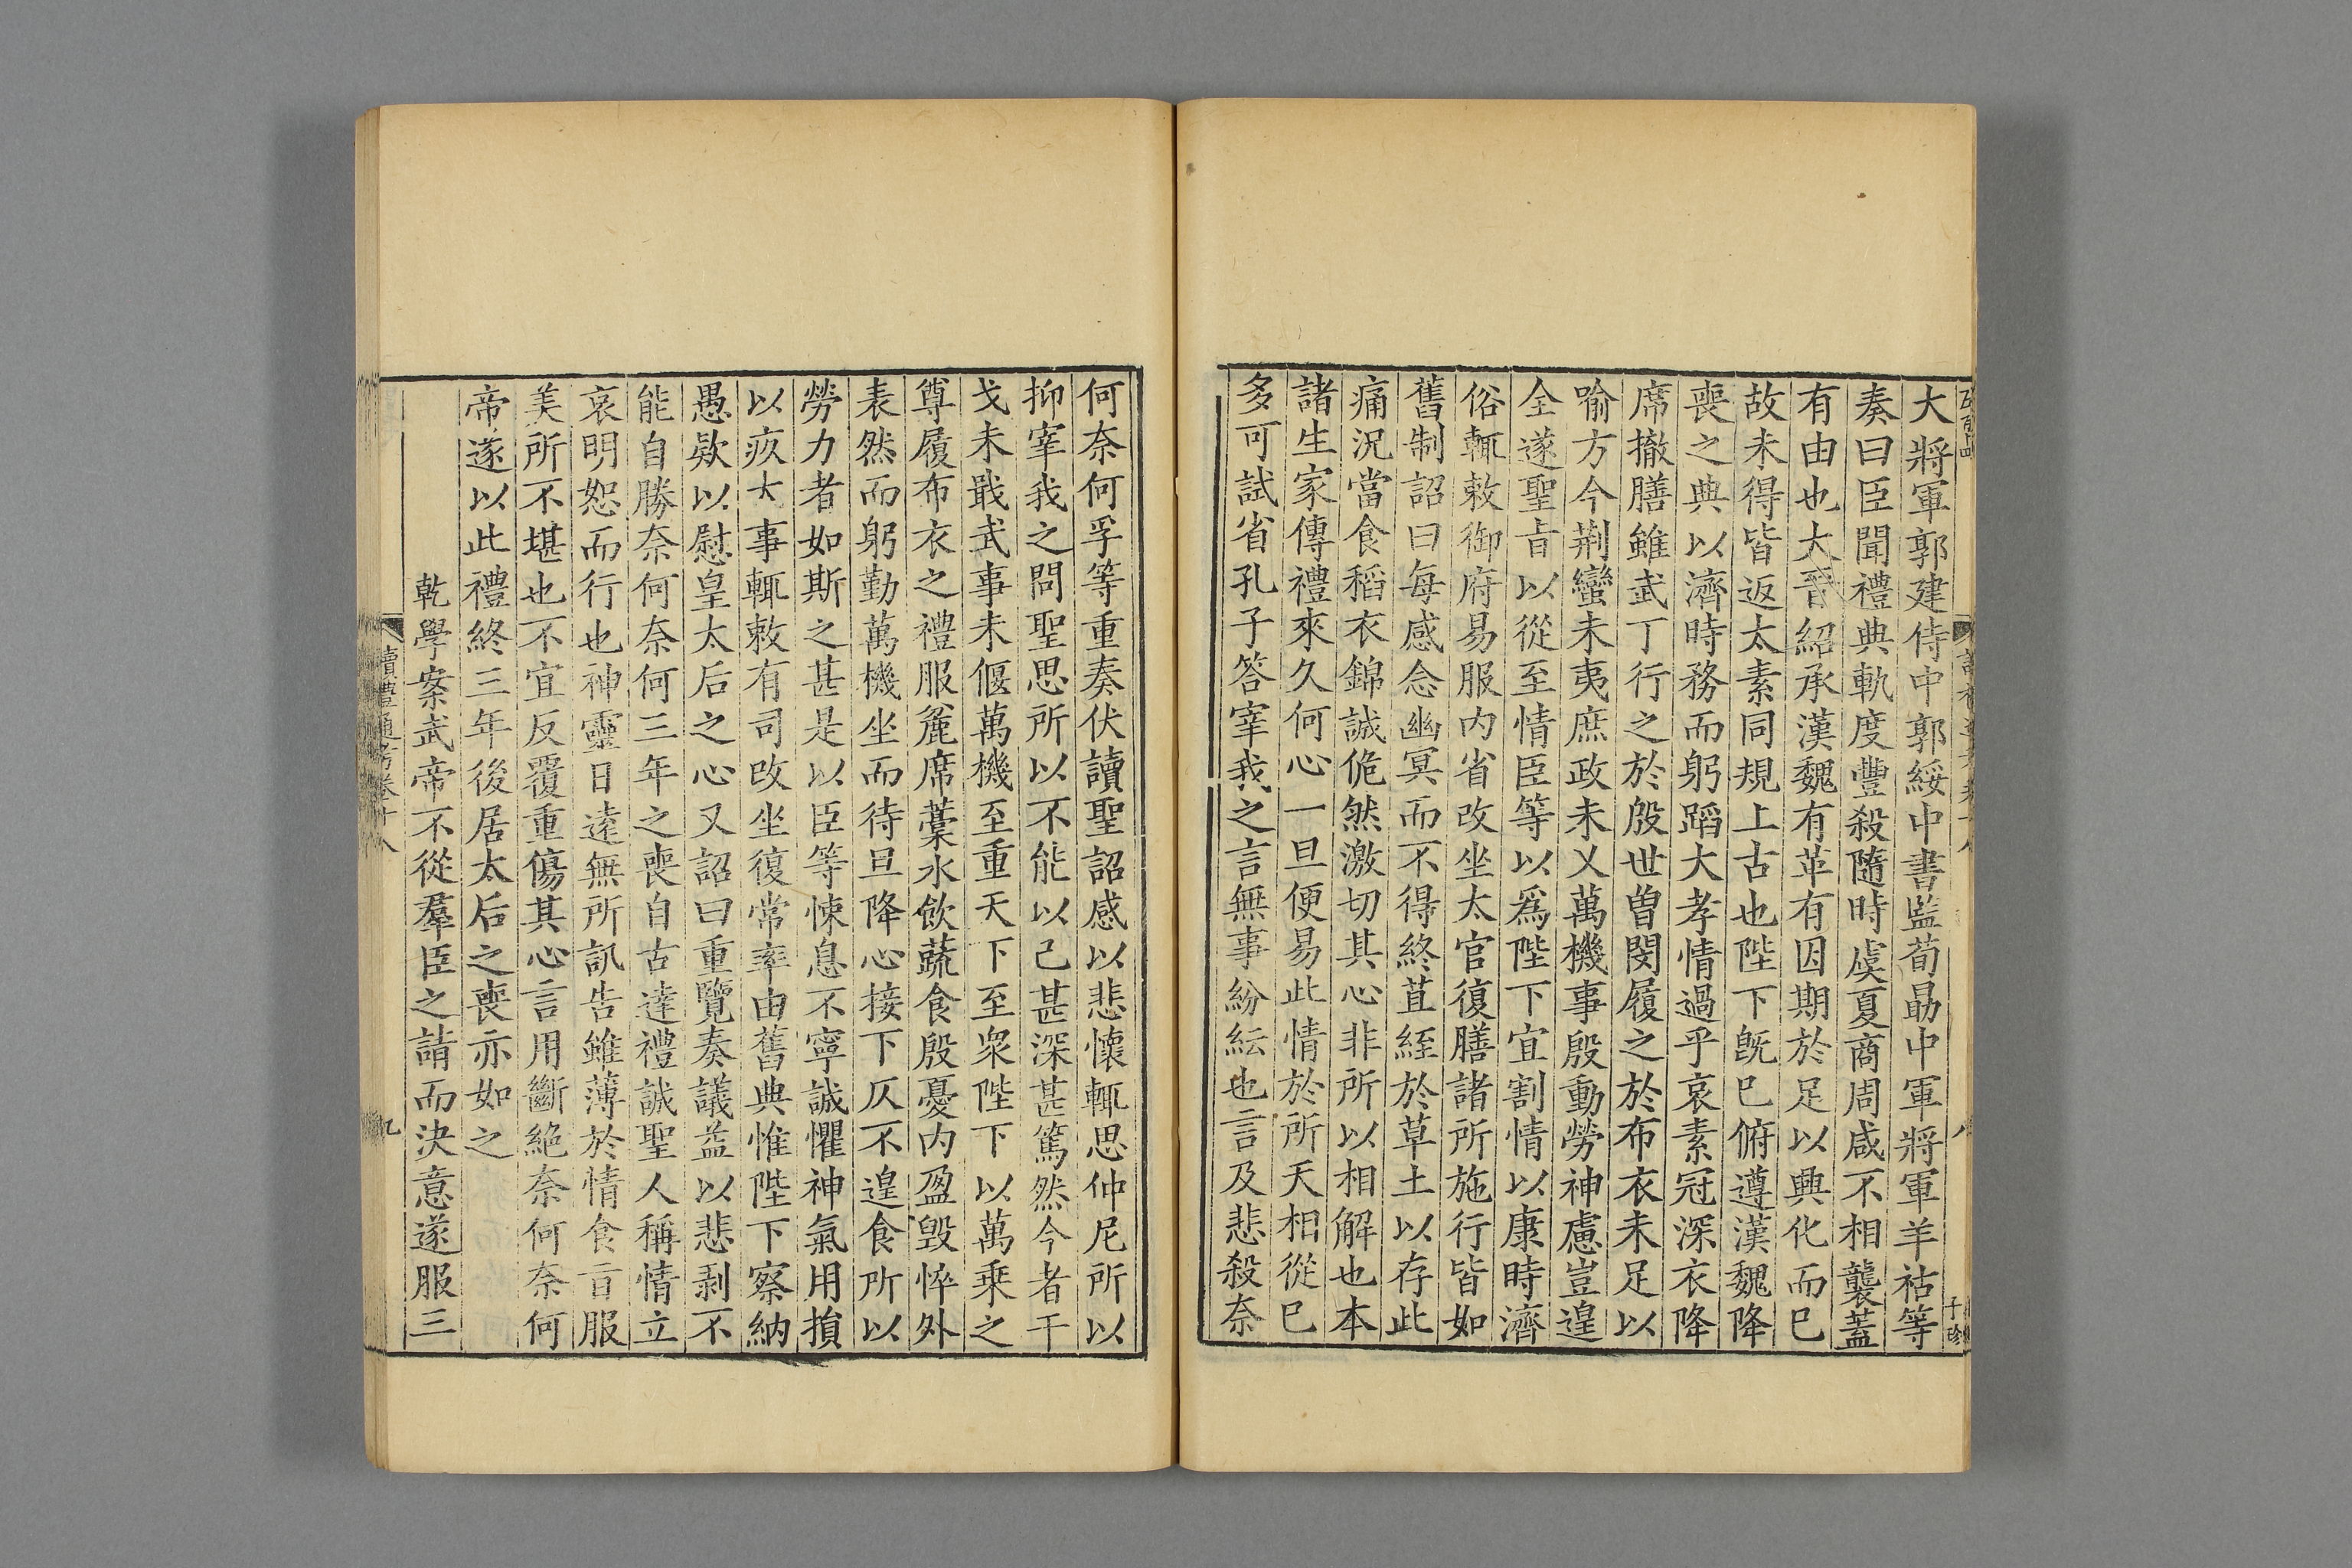 大將軍郭建侍中郭綏中書監荀勗中軍將軍羊祜等
奏曰臣聞禮典軌度豐殺隨時虞夏商周咸不相襲蓋
有由也大晉紹承漢魏有革有因期於足以興化而巳
故未得皆返太素同規上古也陛下旣巳俯遵漢魏降
喪之典以濟時務而躬蹈大孝情過乎哀素冠深衣降
席撤膳雖武丁行之於殷世曾閔履之於布衣未足以
喻方今荆蠻未夷庶政未乂萬機事殷動勞神慮豈遑
全遂聖旨以從至情臣等以爲陛下宜割情以康時濟
俗輒敕御府易服内省改坐太官復膳諸所施行皆如
舊制詔曰每感念幽冥而不得終苴絰於草土以存此
痛況當食稻衣錦誠佹然激切其心非所以相解也本
諸生家傳禮來久何心一旦便易此情於所天相從巳
多可試省孔子答宰我之言無事紛紜也言及悲殺奈
何奈何孚等重奏伏讀聖詔感以悲懷輒思仲尼所以
抑宰我之問聖思所以不能以己甚深甚篤然今者干
戈未戢武事未偃萬機至重天下至衆陛下以萬乗之
尊履布衣之禮服麄席藁水飲蔬食殷憂内盈毁悴外
表然而躬勤萬機坐而待旦降心接下仄不遑食所以
勞力者如斯之甚是以臣等悚息不寧誠懼神氣用損
以疚大事輒敕有司改坐復常率由舊典惟陛下察納
愚欵以慰皇太后之心又詔曰重覽奏議益以悲剥不
能自勝奈何奈何三年之喪自古達禮誠聖人稱情立
哀明恕而行也神靈日逺無所訊告雖薄於情食旨服
美所不堪也不宜反覆重傷其心言用斷絶奈何奈何
帝遂以此禮終三年後居太后之喪亦如之
乾學案武帝不從羣臣之請而決意遂服三
讀禮通考卷十八
九